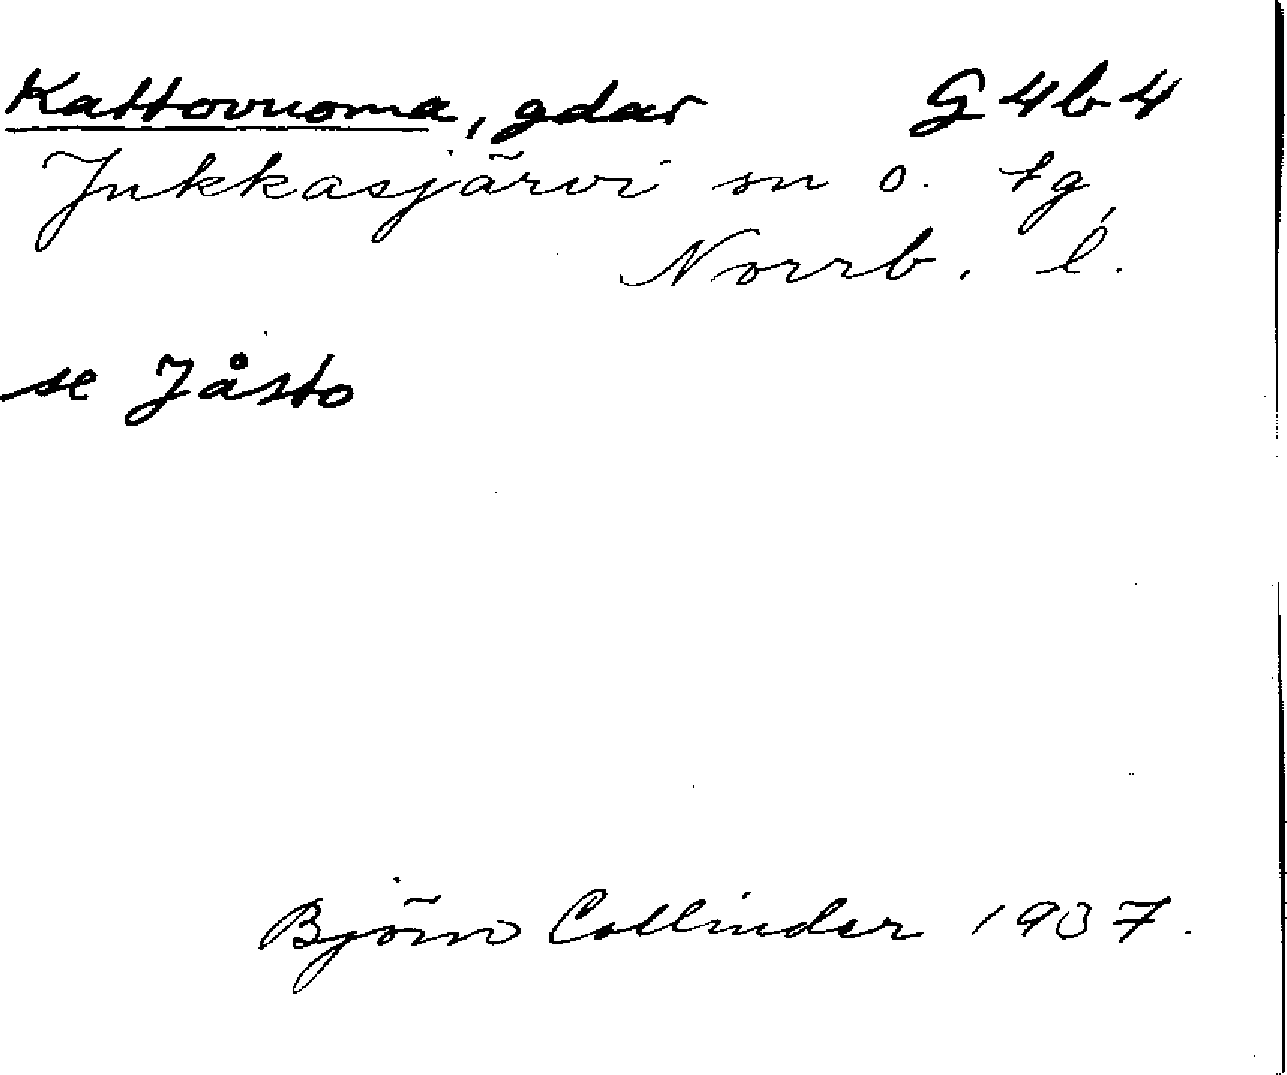 Kattovuoma, gdar G4b4
Jukkasjärvi sn o. tg,
Norrb. l.
se Jåsto
Björn Collinder 1937.